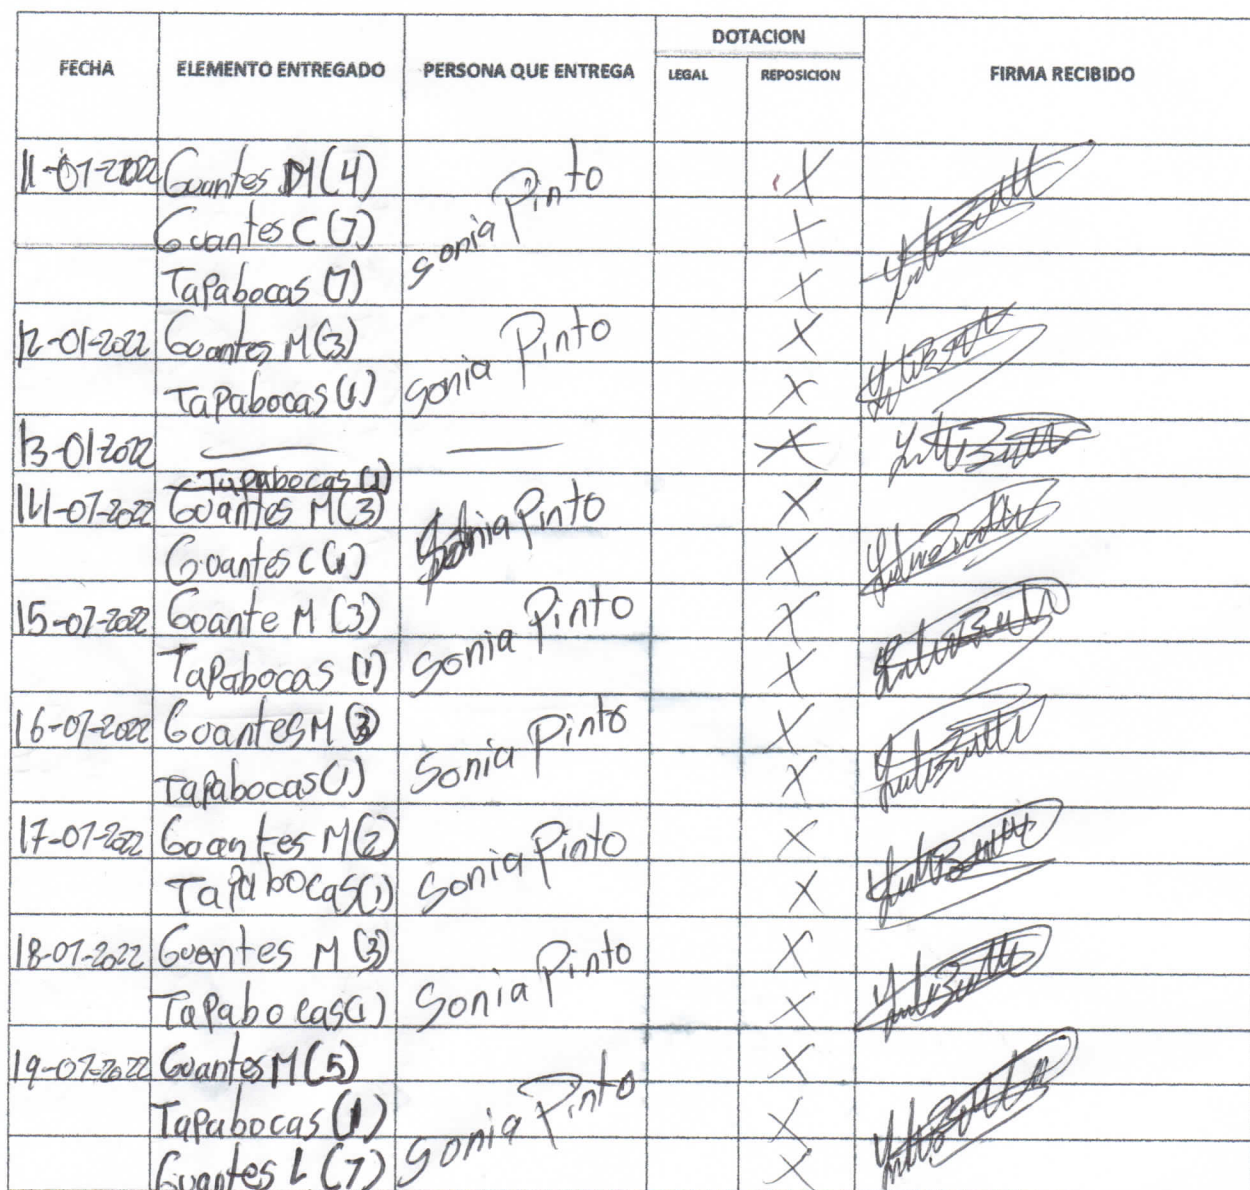 DOTACION
FECHA ELEMENTO ENTREGADO PERSONA QUE ENTREGA LEGAL REPOSICION FIRMA RECIBIDO
11-01-2022 Guantes M (4) Sonia Pinto X
Guantes C (7) X
Tapabocas (7) X
12-01-2022 Guantes M (3) Sonia Pinto X
Tapabocas (1) X
13-01-2022 — — X
Tapabocas (1)
14-01-2022 Guantes M (3) Sonia Pinto X
Guantes C (1) X
15-01-2022 Goante M (3) Sonia Pinto X
Tapabocas (1) X
16-01-2022 Goantes M (3) Sonia Pinto X
Tapabocas (1) X
17-01-2022 Goantes M (2) Sonia Pinto X
Tapabocas (1) X
18-01-2022 Guantes M (3) Sonia Pinto X
Tapabocas (1) X
19-01-2022 Guantes M (5) Sonia Pinto X
Tapabocas (1) X
Guantes L (7) X